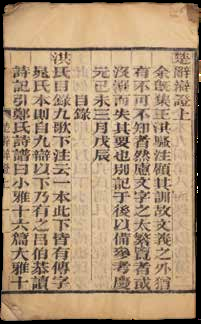 楚辭辯證上
余既集王洪騷注顧其訓故文義之外猶
有不可不知者然慮文字之太繁覽者或
沒溺而失其要也別記于後以備參考慶
元己未三月戊辰
目錄
洪氏目錄九歌下注云一本此下皆有傳字
晁氏本則自九辯以下乃有之呂伯恭讀
詩記引鄭氏詩譜曰小雅十六篇大雅十
楚辭辯證上